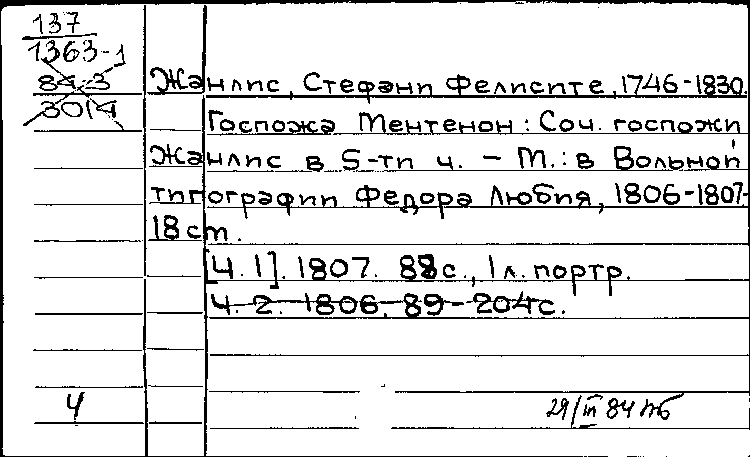 137
1363-1
84-3
3014
Жанлис, Стефани Фелисите, 1746-1830.
Госпожа Ментенон: Соч. госпожи
Жанлис в 5-ти ч. - М.: в Вольной
типографии Федора Любия, 1806-1807.-
18 cm.
[Ч. 1]. 1807. 88 с., 1 л. портр.
Ч. 2. 1806. 89-204 с.
4
29/III 84